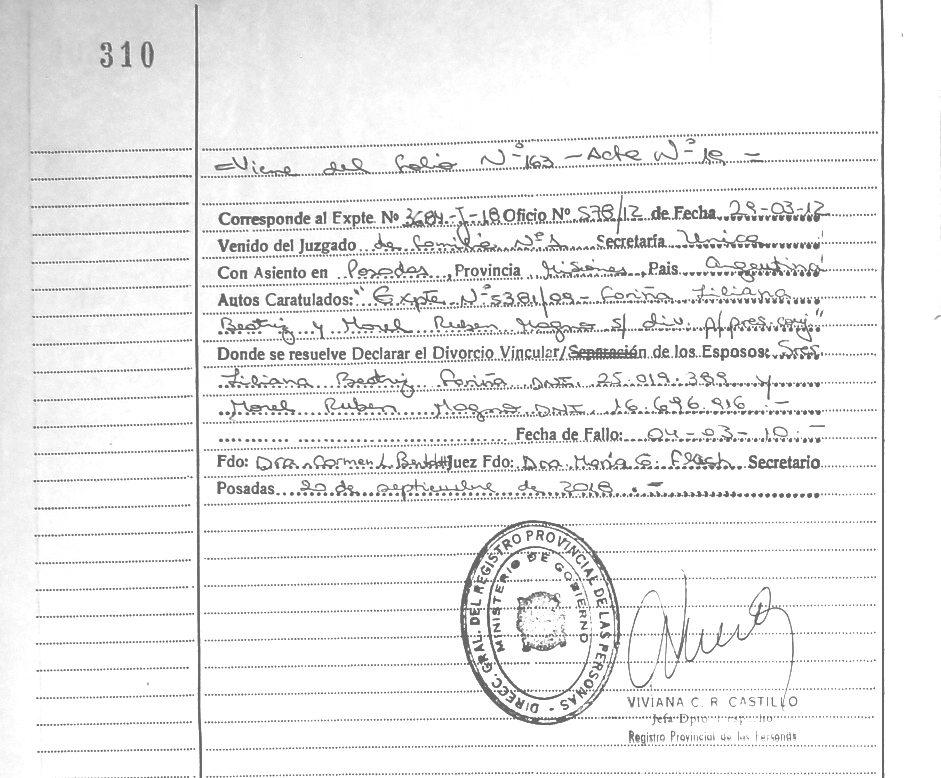 310
=Viene del folio Nº 163 - Acta Nº 19 =
Corresponde al Expte. Nº 3684-J-18 Oficio Nº 578/12 de Fecha 29-03-12
Venido del Juzgado de Familia Nº 1 Secretaría Unica
Con Asiento en Posadas, Provincia Misiones, País Argentina
Autos Caratulados: "Expte Nº 5381/09 - Fariña Liliana
Beatriz y Morel Ruben Magno s/ div. p/pres. conj."
Donde se resuelve Declarar el Divorcio Vincular/Separación de los Esposos: Sres
Liliana Beatriz Fariña DNI. 25.019.389 y
Morel Ruben Magno DNI. 16.696.916.-
Fecha de Fallo: 04-03-10.-
Fdo: Dra. Carmen L. Juez Fdo: Dra. María G. Flach Secretario
Posadas 20 de septiembre de 2018.-
DIRECC. GRAL. DEL REGISTRO PROVINCIAL DE LAS PERSONAS -
MINISTERIO DE GOBIERNO
VIVIANA C. R. CASTILLO
Jefa Dpto
Registro Provincial de las Personas